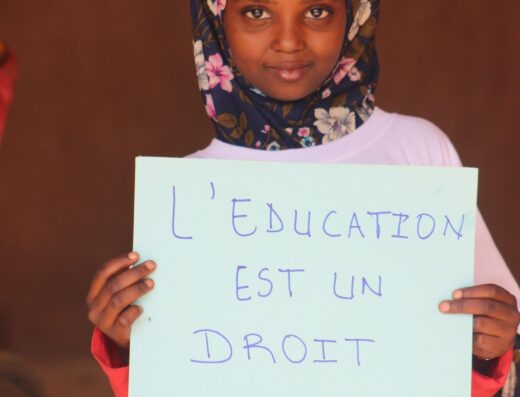 L'EDUCATION
EST UN
DROIT